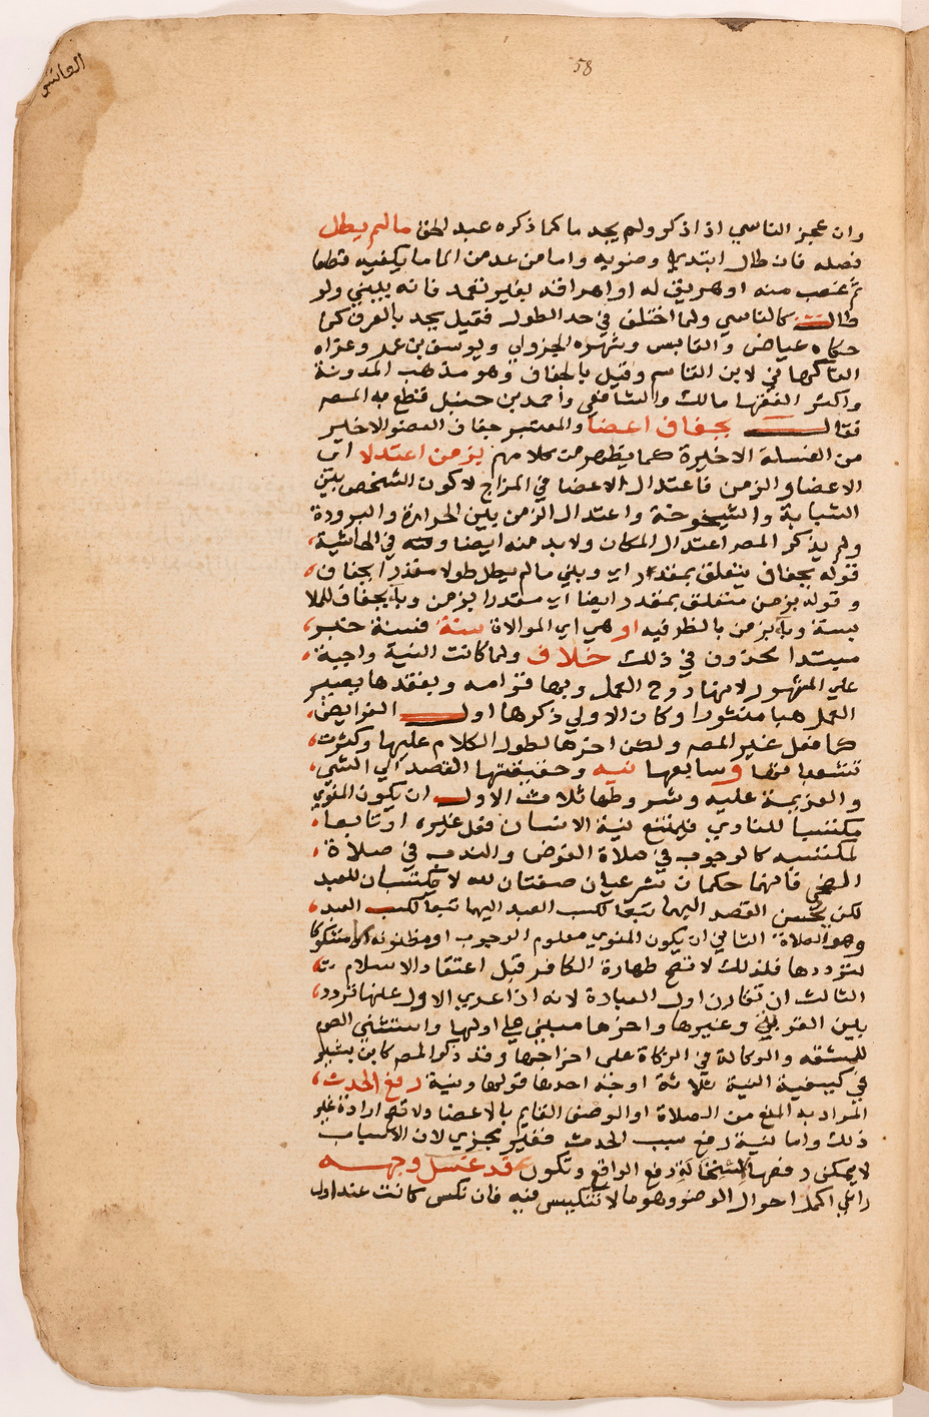 58
العاشر
وان عجز الناسي اذا ذكر ولم يجد ما كما ذكره عبد الحق مالم يطل
فصله فان طال ابتدي وضويه واما من عد من الما ما يكفيه قطعا
ثم غصب منه او هريق له او اهراقه بغير تعمد فانه يبني ولو
طالت كالناسي ولما اختلف في حد الطول فقيل يحد بالعرف كما
حكاه عياض والقابس وشهره الجزولي ويوسف بن عمر وعزاه
الفاكهاني لابن القاسم وقيل بالجفاف وهو مذهب المدونة
واكثر الفقها مالك والشافعي واحمد بن حنبل قطع به المصـ
فقال بجفاف اعضا والمعتبر جفاف العضو الاخير
من الغسلة الاخيرة كما يظهر من كلامهم بزمن اعتدلا اي
الاعضا والزمن فاعتدال الاعضا في المزاج لا كون الشخص بين
الشبابة والشيخوخة واعتدال الزمن بين الحرارة والبرودة
ولم يذكر المصـ اعتدال المكان ولا بد منه ايضا وفيه في الحاشية
قوله بجفاف يتعلق بمقدر اي ويبني مالم يطل طولا مقدرا بجفاف
وقوله بزمن متعلق بمقدر ايضا اي مقدرا بزمن وبآ بجفاف للملا
بسة وبآ بزمن بالظرفيه او هي اي الموالاة سنة فسنة خبر
مبتدا محذوف في ذلك خلاف ولما كانت النية واجبة
علي المشهور لانها روح العمل وبها قوامه وبفقدها يصير
العمل هبا منثورا وكان الاولي ذكرها اول الفرايض
كما فعل غير المصـ ولكن اخرها لطول الكلام عليها وكثرت
تشعبا فقا وسابعها نيه وحقيقتها القصد الي الشي
والعزيمة عليه وشروطها ثلاث الاول ان يكون المنوي
مكتسبا للناوي فيمتنع نية الانسان فعل غيره او تابعا
لمكتسبه كالوجوب في صلاة الفرض والندب في صلاة
الضحي فانهما حكمان شرعيان صفتان لله لا مكتسبان للعبد
لكن يحسن القصد اليهما تبعا لكسب العبد اليها تبعا لكسب العبد
وهو الصلاة الثاني ان يكون المنوي معلوم الوجوب او مظنونه لا مشكوكا
لترددها فلذلك لا تصح طهارة الكافر قبل اعتقاد الاسلام
الثالث ان تقارن اول العبادة لانه اذا عري الاول عنها تردد
بين القربة وغيرها واخرها مبني علي اولها واستثني الصوم
للمشقه والوكالة في الزكاة علي اخراجها وقد ذكر المصـ كابن بشير
في كيفية النية ثلاثة اوجه احدها قولها ونية رفع الحدث
المراد به المنع من الصلاة او الوصف القايم بالاعضا ولا تصح ارادة غير
ذلك واما نية رفع سبب الحدث فغير مجزي لان الاسباب
لا يمكن رفعها لاستحالة رفع الواقع وتكون قد غسل وجهـه
راعي اكمل احوال الوضو وهو ما لا تنكيس فيه فان نكس كانت عند اول